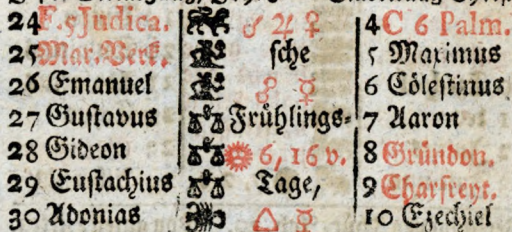 24 F. 5 Judica. ♂ ♃ ♀ 4 C 6 Palm.
25 Mar. Verk. sche 5 Maximus
26 Emanuel ♂ ☿ 6 Cölestinus
27 Gustavus Frühlings- 7 Aaron
28 Gideon 6, 16 v. 8 Gründon.
29 Eustachius Tage, 9 Charfreyt.
30 Adonias △ ☿ 10 Ezechiel